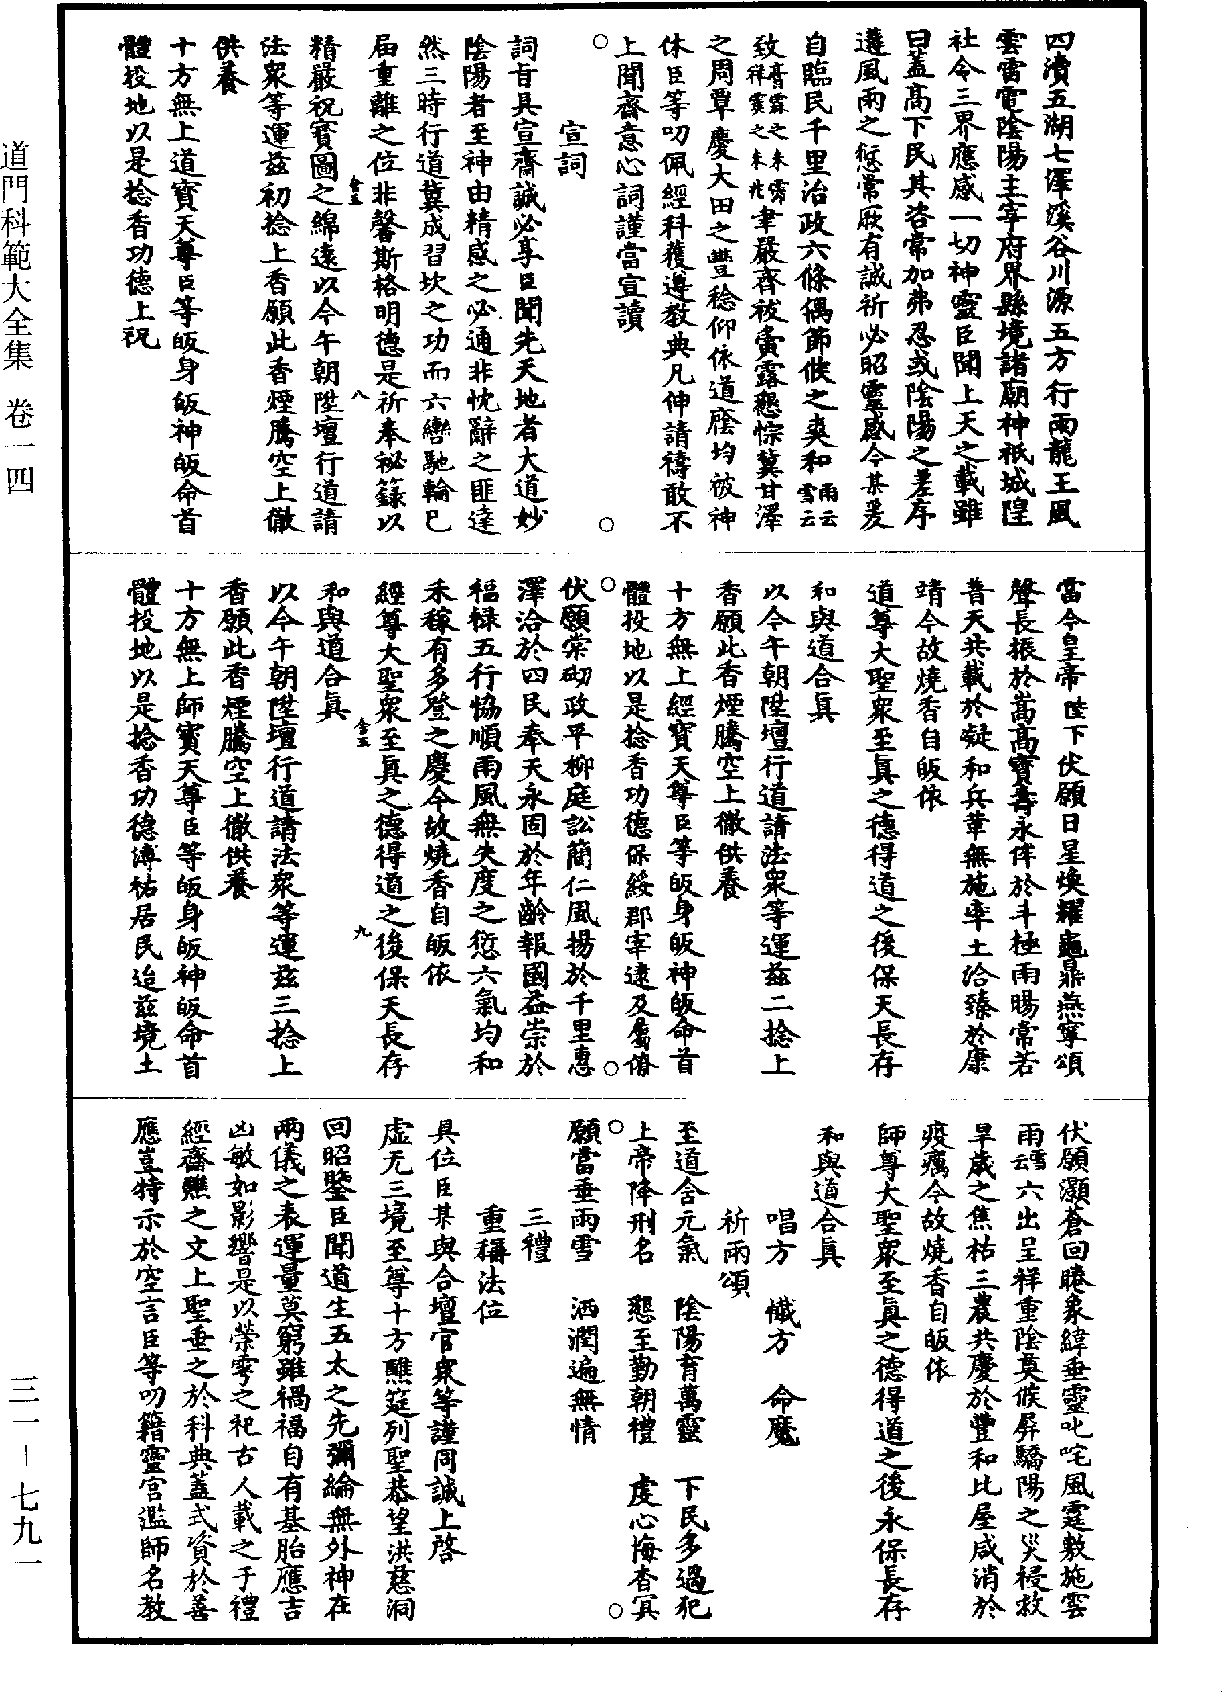 四瀆五湖七澤溪谷川源五方行雨龍王風
雲雷電陰陽主宰府界縣境諸廟神祇城隍
社令三界應感一切神靈臣聞上天之載雖
曰蓋高下民其咨常加弗忍或陰陽之差序
遘風雨之愆常厥有誠祈必昭靈感今某爰
自臨民千里治政六條偶節候之爽和雨云雪云
致膏霖之未霈祥霙之未兆聿嚴齊袚賁露懇悰冀甘澤
之周覃慶大田之豐稔仰依道廕均被神
休臣等叨佩經科獲遵教典凡伸請禱敢不
上聞齋意心詞謹當宣讀
○ ○
宣詞
詞旨具宣齋誠必享臣聞先天地者大道妙
陰陽者至神由精感之必通非忱辭之匪達
然三時行道冀成習坎之功而六轡馳輪已
届重離之位非馨斯格明德是祈奉祕籙以
精嚴祝寶圖之綿遠以今午朝陞壇行道請
法衆等運茲初捻上香願此香煙騰空上徹
供養
十方無上道寶天尊臣等皈身皈神皈命首
體投地以是捻香功德上祝
當今皇帝陛下伏願日星煥耀龜鼎燕寧頌
聲長振於嵩高寶壽永侔於斗極雨暘常若
普天共載於凝和兵革無施率土洽臻於康
靖今故燒香自皈依
道尊大聖衆至真之德得道之後保天長存
和與道合真
以今午朝陞壇行道請法衆等運茲二捻上
香願此香煙騰空上徹供養
十方無上經寶天尊臣等皈身皈神皈命首
體投地以是捻香功德保綏郡宰遠及屬僚
○ ○
伏願棠砌政平柳庭訟簡仁風揚於千里惠
澤洽於四民奉天永固於年齡報國益崇於
福祿五行協順雨風無失度之愆六氣均和
禾稼有多登之慶今故燒香自皈依
經尊大聖衆至真之德得道之後保天長存
和與道合真
以今午朝陞壇行道請法衆等運茲三捻上
香願此香煙騰空上徹供養
十方無上師寶天尊臣等皈身皈神皈命首
體投地以是捻香功德溥祐居民迨茲境土
伏願灝蒼回睠象緯垂靈叱咤風霆敷施雲
雨雪云六出呈祥重陰奠候屏驕陽之災祲救
旱歲之焦枯三農共慶於豐和比屋咸消於
疫癘今故燒香自皈依
師尊大聖衆至真之德得道之後永保長存
和與道合真
唱方　懺方　命魔
祈雨頌
至道含元氣　陰陽育萬靈　下民多過犯
上帝降刑名　懇至勤朝禮　虔心悔杳冥
○ ○
願當垂雨雪　洒潤遍無情
三禮
重稱法位
具位臣某與合壇官衆等謹同誠上啓
虛无三境至尊十方醮筵列聖恭望洪慈洞
回昭鑒臣聞道生五太之先彌綸無外神在
兩儀之表運量莫窮雖禍福自有基胎應吉
凶敏如影響是以禜雩之祀古人載之于禮
經齋醮之文上聖垂之於科典蓋式資於善
應豈特示於空言臣等叨籍靈宫濫師名教
道門科範大全集　卷一四
三一－七九一